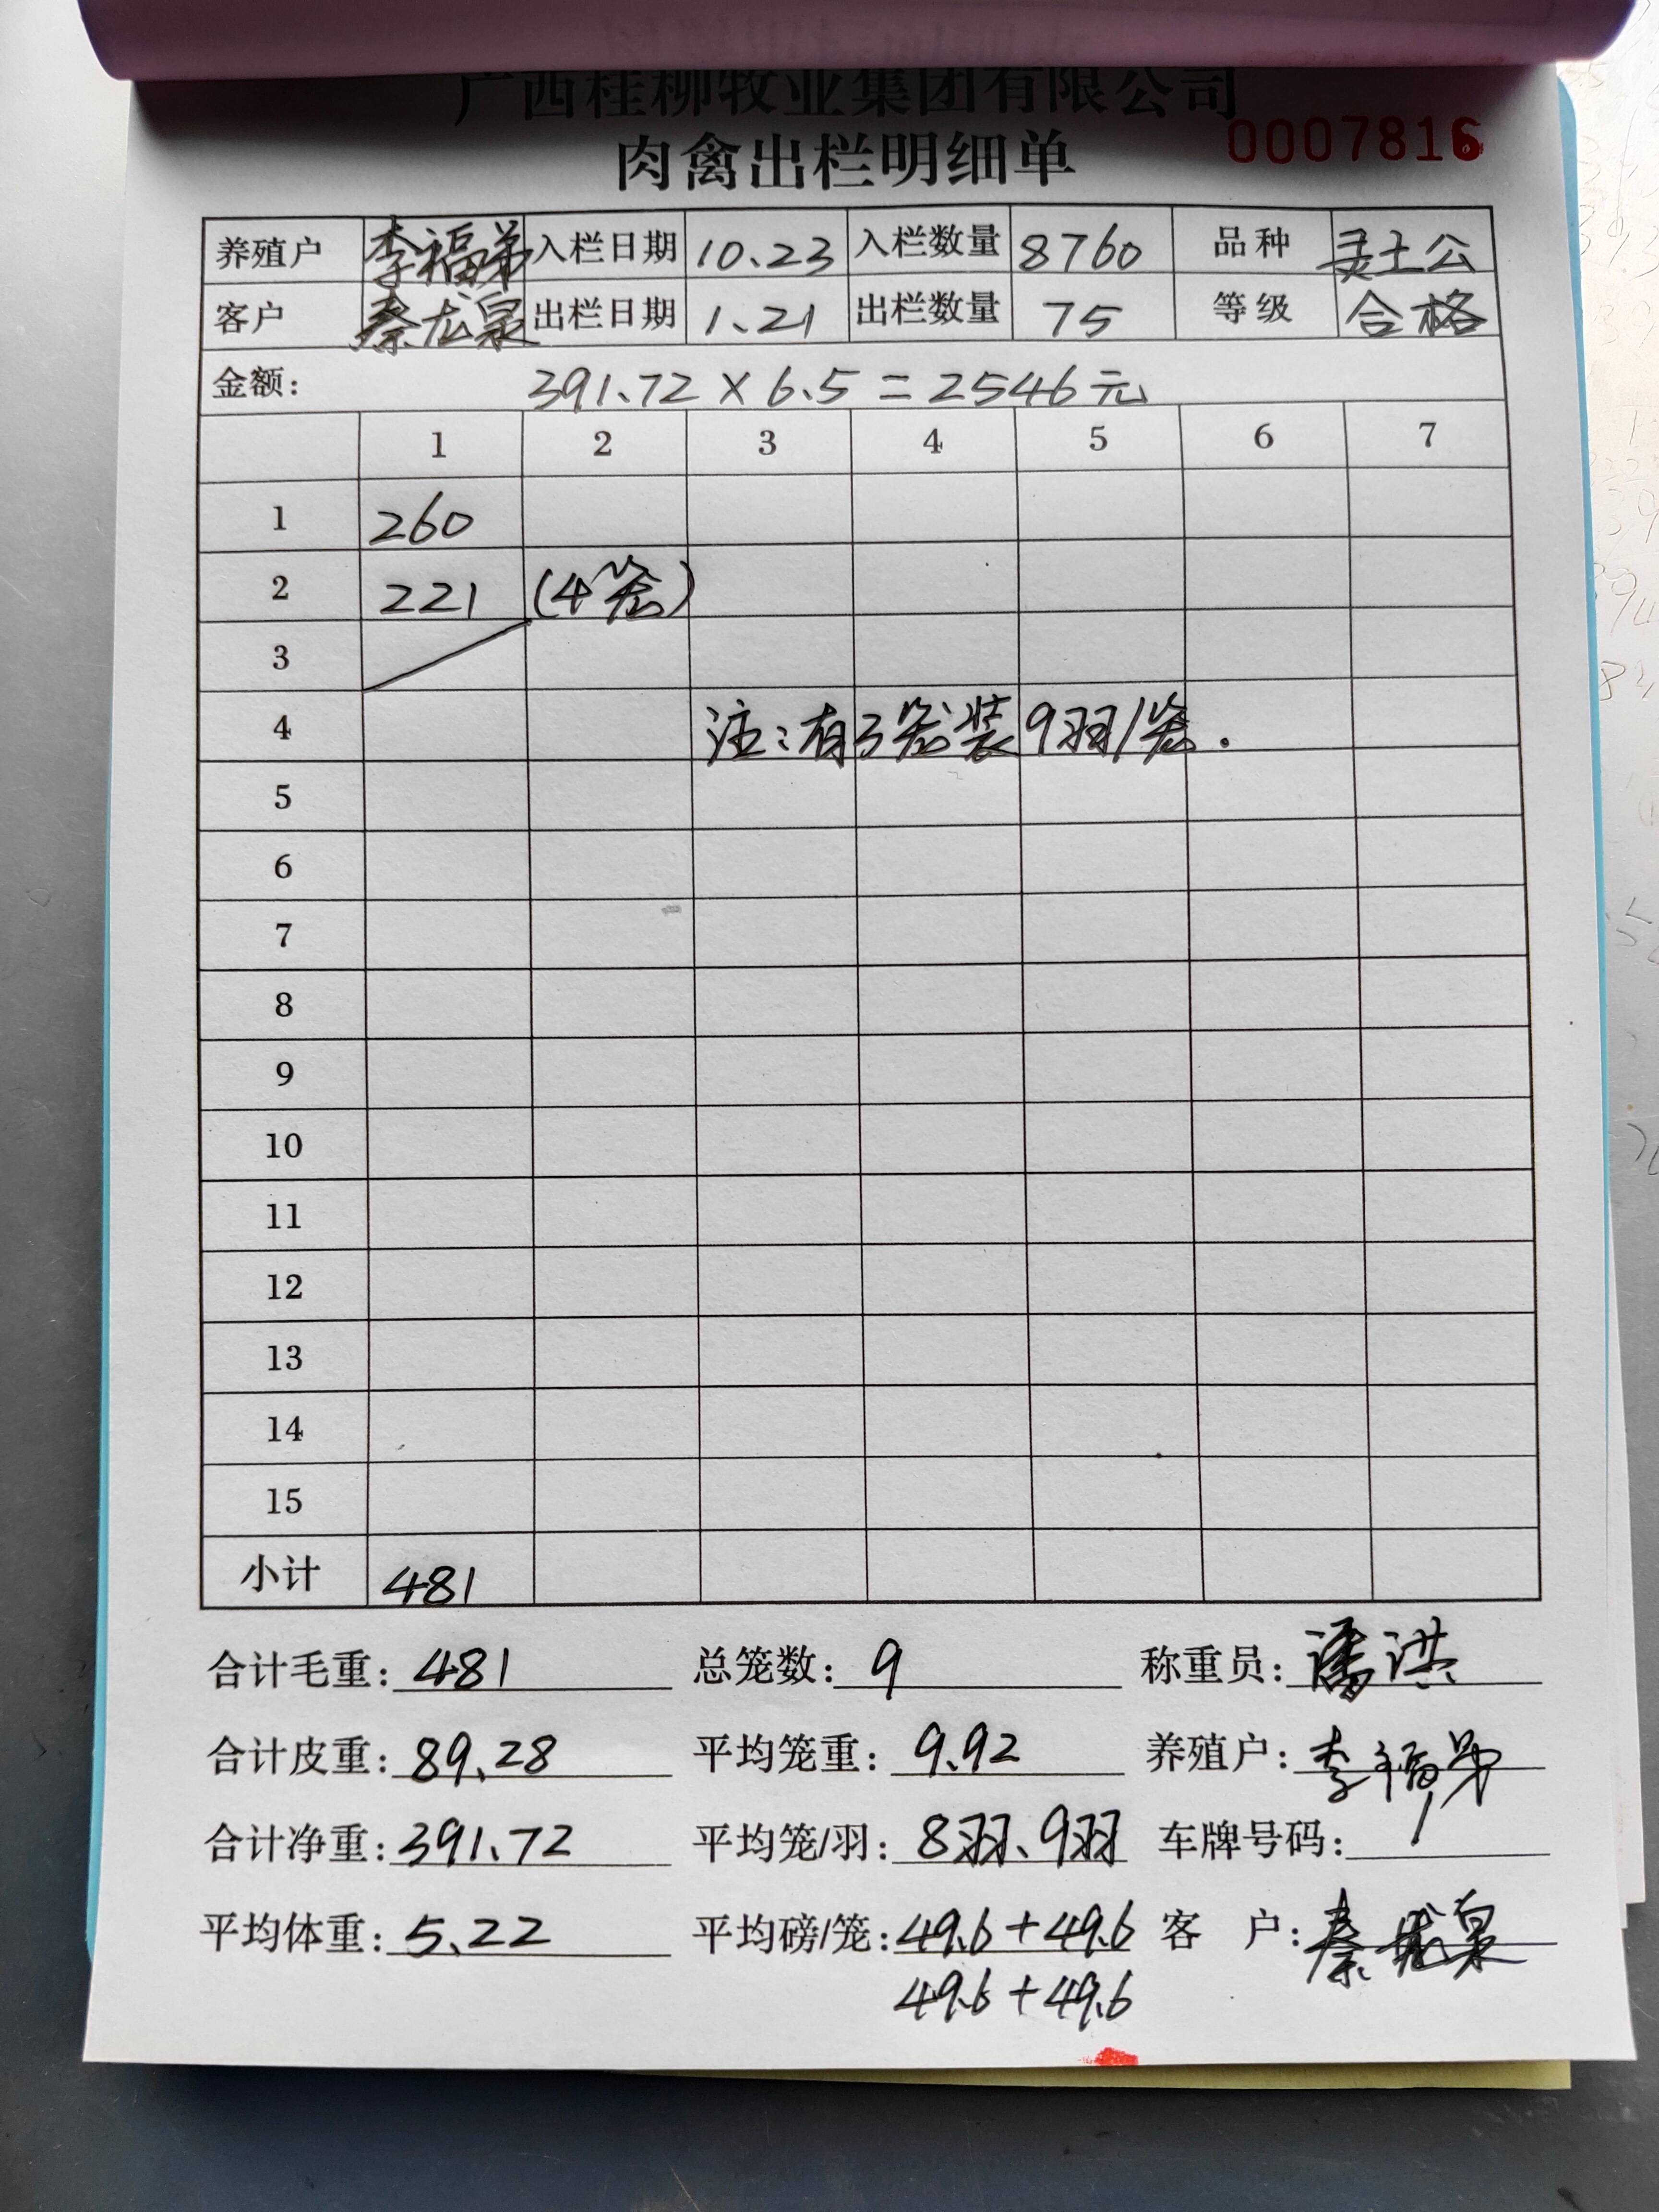 广西桂柳牧业集团有限公司
肉禽出栏明细单
0007816
养殖户 李福弟 入栏日期 10.23 入栏数量 8760 品种 灵土公
客户 秦龙泉 出栏日期 1.21 出栏数量 75 等级 合格
金额: 391.72 × 6.5 = 2546元
1 2 3 4 5 6 7
1 260
2 221 (4笼)
3
4 注:有3笼装9羽/笼.
5
6
7
8
9
10
11
12
13
14
15
小计 481
合计毛重: 481 总笼数: 9 称重员: 潘洪
合计皮重: 89.28 平均笼重: 9.92 养殖户: 李福弟
合计净重: 391.72 平均笼/羽: 8羽、9羽 车牌号码: /
平均体重: 5.22 平均磅/笼: 49.6+49.6 客 户: 秦龙泉
49.6+49.6